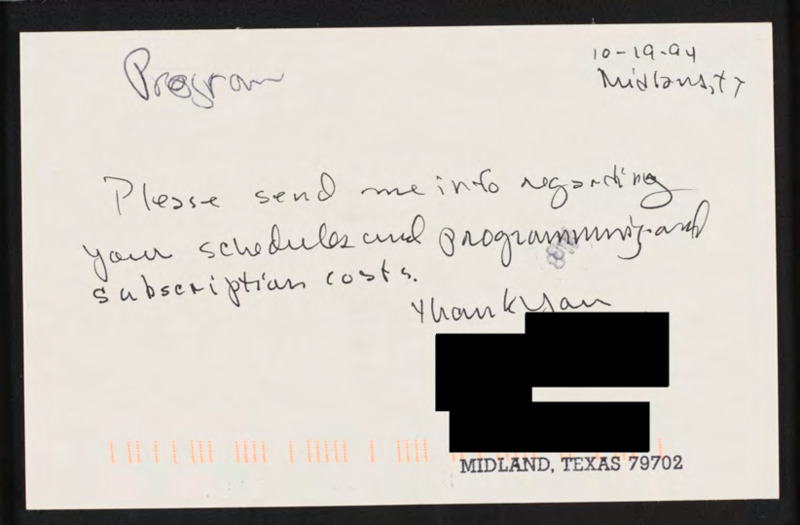 Program
10-19-94
Midland, TX
Please send me info regarding
your schedules and programming and
subscription costs.
Thank You
MIDLAND, TEXAS 79702